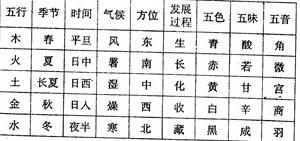 五行 季节 时间 气候 方位 发展过程 五色 五味 五音
木 春 平旦 风 东 生 青 酸 角
火 夏 日中 暑 南 长 赤 若 微
土 长夏 日西 湿 中 化 黄 甘 宫
金 秋 日人 燥 西 收 白 辛 商
水 冬 夜半 寒 北 藏 黑 咸 羽